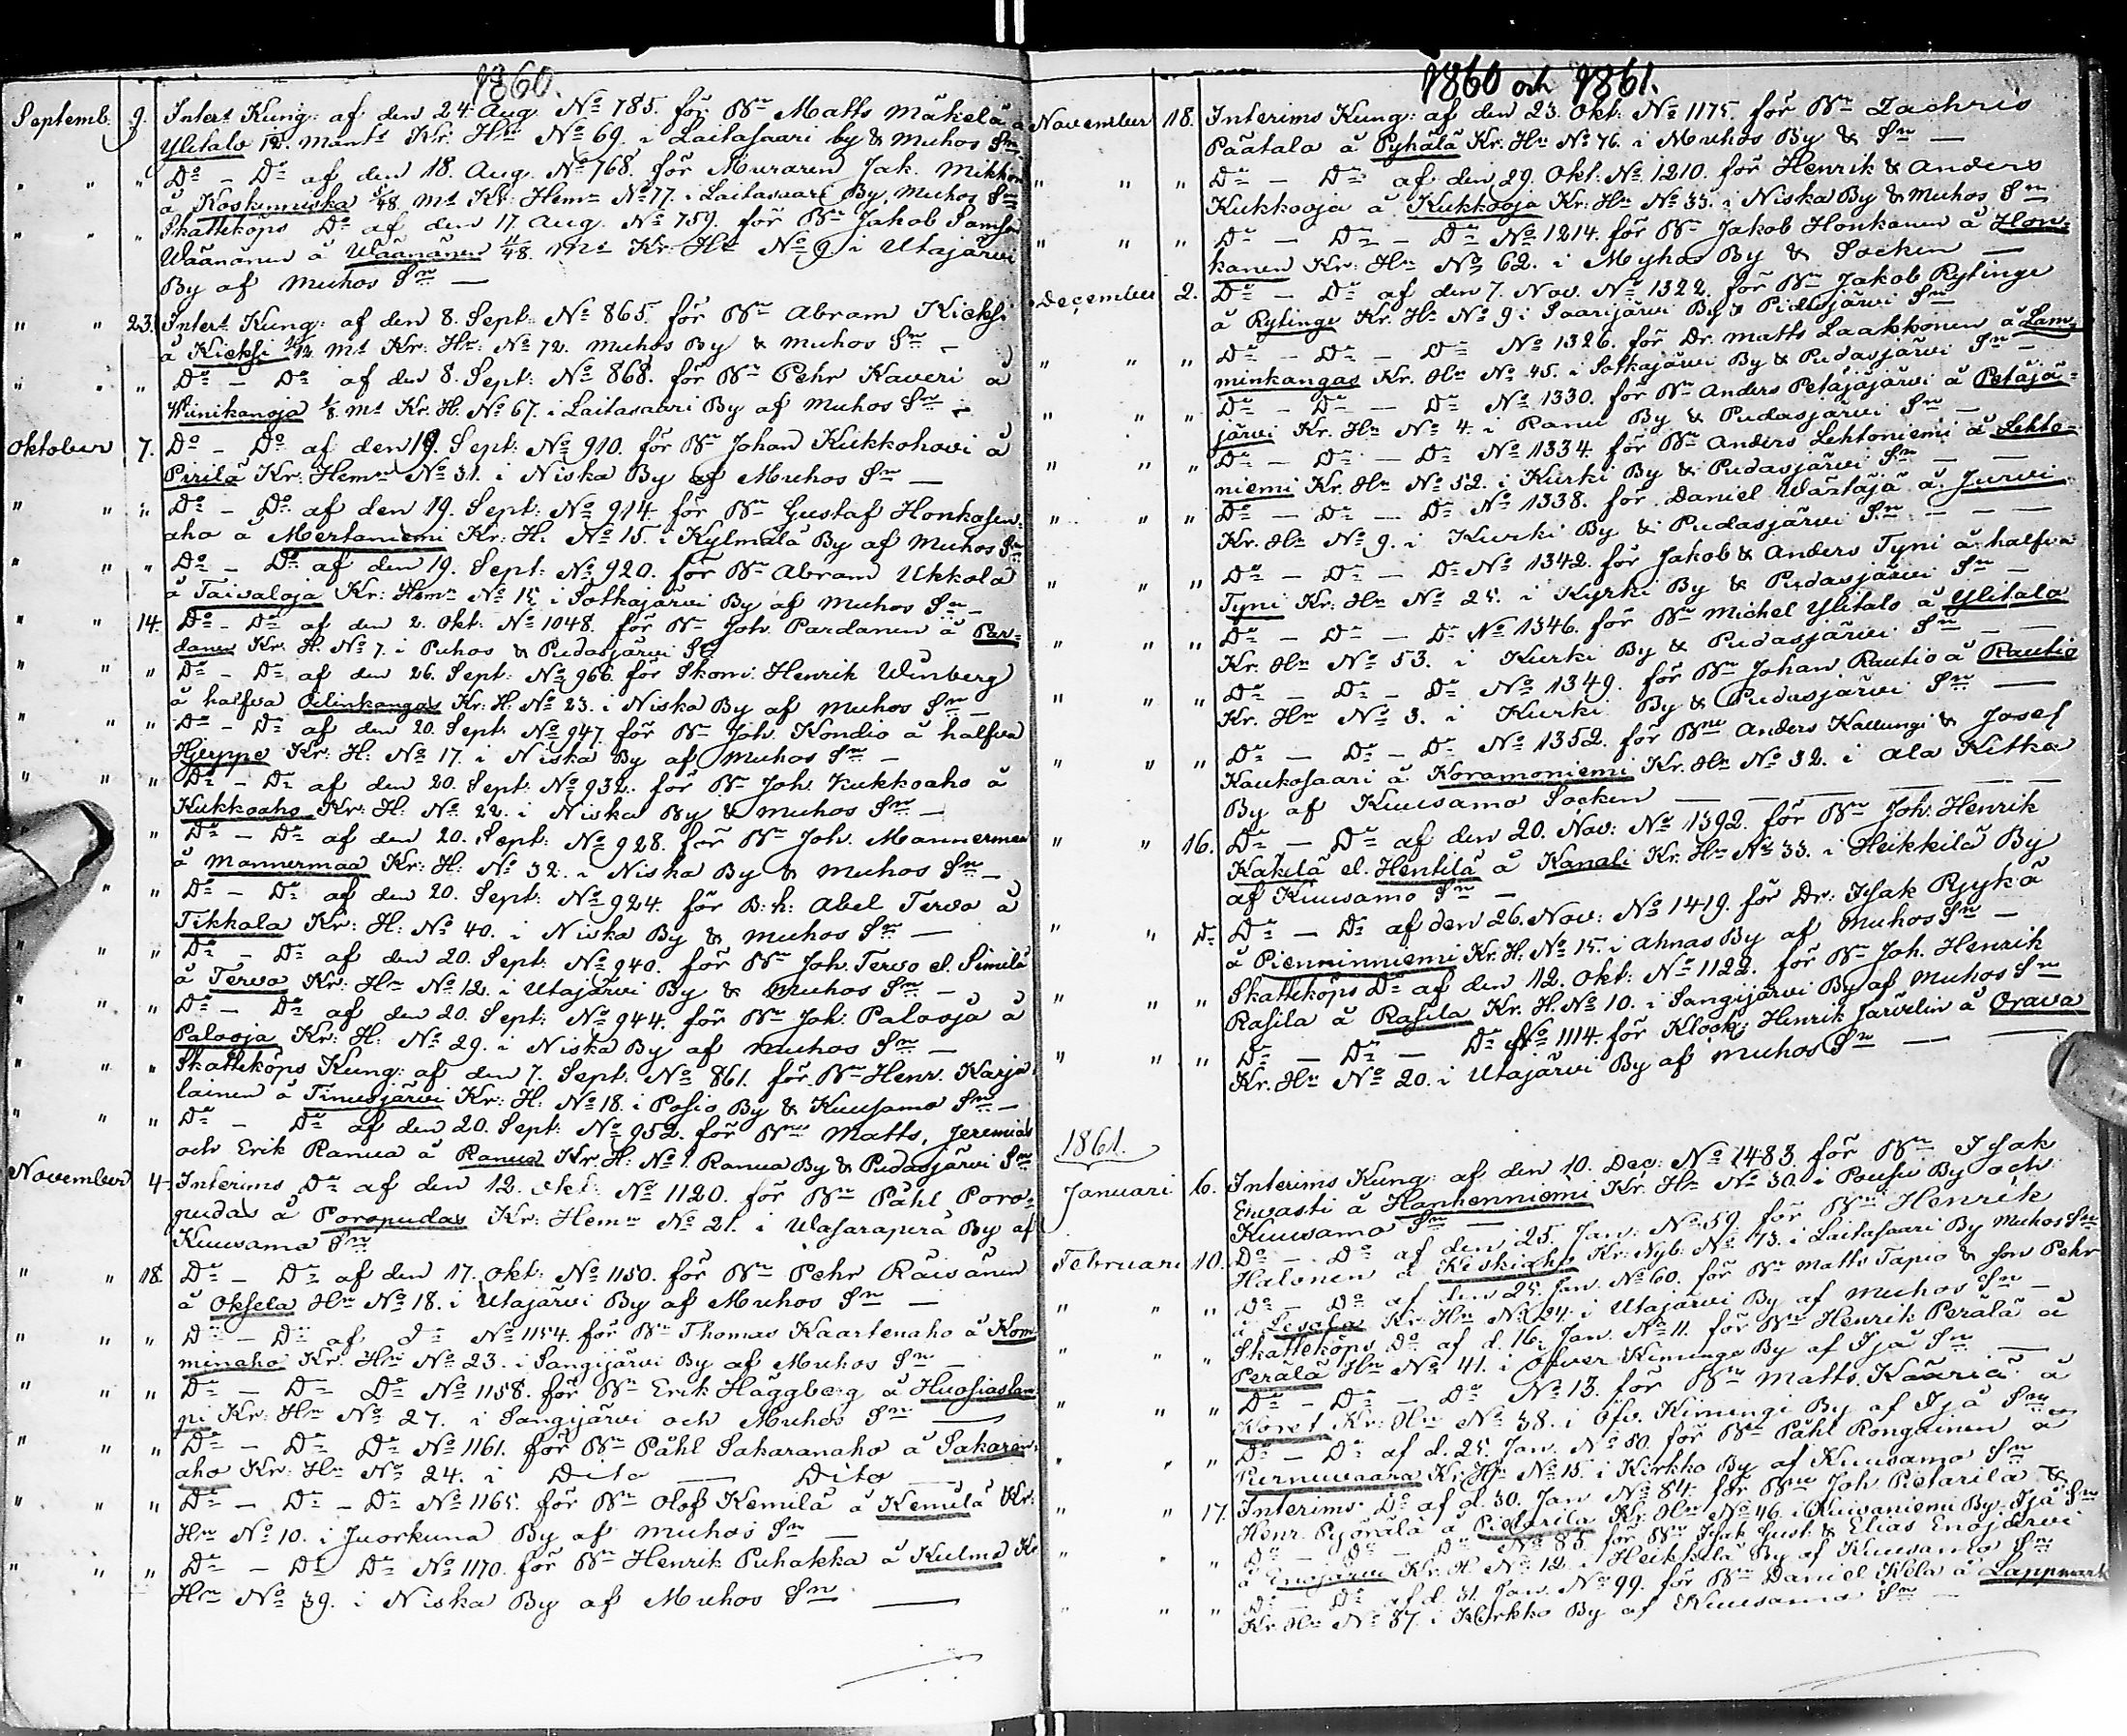 1860.
Septemb. 9. Inter: Kung: af den 24 Aug № 785. för Bn Matts Mäkelä å
Ylitalo 12. mant: Kr. Hn № 69. i Laitasaari by & Muhos Sn
" " " Do - Do af den 18. Aug. № 768. för Muraren Jak. Mikkon
å Koskenniska 5/48. mt Kr. Hemn № 77. i Laitasaari By, Muhos Sn
" " " Skatteköps Do af den 17. Aug. № 759. för Bn Jakob Samson
Wäänänen å Wäänänen 11/48. mt Kr. Hn № 9. i Utajärvi
By af Muhos Sn —
" " 23. Inter: Kung: af den 8. Sept: № 865. för Bn Abram Kieksi
å Kieksi mt Kr: Hn: № 72. Muhos By & Muhos Sn —
" " " Do - Do af den 8. Sept: № 868. för Bn Pehr Kaveri å
Wiinikanoja 1/8. mt Kr. H. № 67. i Laitasaari By af Muhos Sn —
Oktober 7. Do - Do af den 19. Sept: № 910. för Bn Johan Kukkohovi å
Pirilä Kr: Hemn № 31. i Niska By af Muhos Sn —
" " " Do - Do af den 19. Sept: № 914. för Bn Gustaf Honkasen-
aho å Mertaniemi Kr: H. № 15. i Kylmälä By af Muhos Sn
" " " Do - Do af den 19. Sept: № 920. för Bn Abram Ukkola
å Taivaloja Kr: Hemn № 15 i Sotkajärvi By af Muhos Sn —
" " 14. Do - Do af den 2. Okt: № 1048. för Bn Joh. Pardanen å Par-
danen Kr. H. № 7. i Puhos & Pudasjärvi Sn
" " " Do - Do af den 26. Sept: № 966. för Skom: Henrik Winberg
å halfva Oilinkangas Kr: H: № 23. i Niska By af Muhos Sn —
" " " Do - Do af den 20. Sept: № 947 för Bn Joh. Kondio å halfva
Hyryppe Kr: H: № 17. i Niska By af Muhos Sn —
" " " Do - Do af den 20. Sept: № 932. för Bn Joh. Kukkoaho å
Kukkoaho Kr: H: № 22. i Niska By & Muhos Sn —
" Do - Do af den 20. Sept: № 928. för Bn Joh. Mannermaa
å Mannermaa Kr: H: № 32. i Niska By & Muhos Sn —
" " Do - Do af den 20. Sept: № 924. för B:h: Abel Tervo å
Tikkala Kr: H: № 40. i Niska By & Muhos Sn —
" " " Do - Do af den 20. Sept: № 940. för Bn Joh. Tervo el. Similä
å Tervo Kr: Hn № 12. i Utajärvi By & Muhos Sn —
" " " Do - Do af den 20. Sept: № 944. för Bn Joh: Palooja å
Palooja Kr: H: № 29. i Niska By af Muhos Sn —
" " " Skatteköps Kung: af den 7. Sept: № 861. för Bn Henr. Karja-
lainen å Tinusjärvi Kr: H: № 18. i Posio By & Kuusamo Sn —
" " " Do - Do af den 20. Sept: № 952. för Bne Matts, Jeremias
och Erik Ranua å Ranua Kr. H: № 1. Ranua By & Pudasjärvi Sn
November 4. Interims Do af den 12. Okt: № 1120. för Bn Påhl Poro-
pudas å Poropudas Kr: Hemn № 21. i Wasaraperä By af
Kuusamo Sn
" " 18. Do - Do af den 17. Okt: № 1150. för Bn Pehr Räisänen
å Oksela Hn № 18. i Utajärvi By af Muhos Sn —
" " " Do - Do af Do № 1154. för Bn Thomas Kaartenaho å Kom-
minaho Kr. Hn № 23. i Sangijärvi By af Muhos Sn —
" " " Do - Do Do № 1158. för Bn Erik Häggberg å Huosiaslam-
pi Kr: Hn № 27. i Sangijärvi och Muhos Sn —
" " " Do - Do Do № 1161. för Bn Påhl Sakaranaho å Sakaran-
aho Kr: Hn № 24. i Dito — Dito —
" " " Do - Do - Do № 1165. för Bn Olof Kemilä å Kemilä Kr:
Hn № 10. i Juorkuna By af Muhos Sn —
" " " Do - Do Do № 1170. för Bn Henrik Puhakka å Kulma Kr
Hn № 39. i Niska By af Muhos Sn —
1860 och 1861.
November 18. Interims Kung: af den 23. Okt: № 1175 för Bn Zachris
Päätala å Pyhälä Kr. Hn № 76. i Muhos By & Sn —
" " " Do - Do af den 29. Okt: № 1210. för Henrik & Anders
Kukkooja å Kukkooja Kr: Hn № 33. i Niska By & Muhos Sn
" " " Do - Do - Do № 1214. för Bn Jakob Honkanen å Hon-
kanen Kr: Hn № 62. i Myhos By & Socken —
December 2. Do - Do af den 7. Nov. № 1322. för Bn Jakob Rytinge
å Rytinge Kr. Hn № 9 i Saarijärvi By & Pudasjärvi Sn
" " " Do - Do - Do № 1326. för Dr. Matts Laakkonen å Lam-
minkangas Kr. Hn № 45. i Sotkajärvi By & Pudasjärvi Sn —
" " " Do - Do - Do № 1330. för Bn Anders Petäjäjärvi å Petäjä-
järvi Kr. Hn № 4. i Ranu By & Pudasjärvi Sn —
" " " Do - Do - Do № 1334. för Bn Anders Lehtoniemi å Lehto-
niemi Kr. Hn № 52. i Kurki By & Pudasjärvi Sn —
" " " Do - Do - Do № 1338. för Daniel Wärtäjä å Jurvi
Kr. Hn № 9. i Kurki By & Pudasjärvi Sn — — —
" " " Do - Do - Do № 1342. för Jakob & Anders Tyni å halfva
Tyni Kr: Hn № 25. i Kyrki By & Pudasjärvi Sn —
" " " Do - Do - Do № 1346. för Bn Michel Ylitalo å Ylitalo
Kr. Hn № 53. i Kurki By & Pudasjärvi Sn — —
" " " Do - Do - Do № 1349. för Bn Johan Rautio å Rautio
Kr. Hn № 3. i Kurki By & Pudasjärvi Sn —
" " " Do - Do - Do № 1352. för Bne Anders Kallungi & Josef
Kaukosaari å Koramoniemi Kr. Hn № 32. i Ala Kitka
By af Kuusamo Socken — — —
" " 16. Do - Do af den 20. Nov: № 1392. för Bn Joh. Henrik
Kakilä el. Hentilä å Kanali Kr. Hn № 33. i Heikkilä By
af Kuusamo Sn —
" " Do Do - Do af den 26. Nov: № 1419. för Dr: Isak Pyykä
å Pienninniemi Kr. H: № 15. i Ahmas By af Muhos Sn —
" " " Skatteköps Do af den 12. Okt: № 1122. för Bn Joh. Henrik
Rasila å Rasila Kr. H. № 10. i Sangijärvi By af Muhos Sn
" " " Do - Do - Do № 1114. för Klock: Henrik Järvelin å Orava
Kr. Hn № 20. i Utajärvi By af Muhos Sn — —
1861.
Januari 6. Interims Kung: af den 10. Dec: № 1483 för Bn Isak
Envasti å Hanhenniemi Kr. Hn № 30. i Pousu By och
Kuusamo Sn —
Februari 10. Do - Do af den 25. Jan: № 59. för Bn Henrik
Halonen å Keskiaho Kr: Nyb: № 73. i Laitasaari By Muhos Sn
" " " Do - Do af den 25. Jan. № 60. för Bn Matts Tapio & son Pehr
å Kr. Hn № 24. i Utajärvi By af Muhos Sn —
" " " Skatteköps Do af d. 16. Jan. № 11. för Bn Henrik Perälä å
Perälä Hn № 41. i Öfver Kiminge By af Ijå Sn —
" " " Do - Do - Do № 13. för Bn Matts Kääriä å
Koret Kr: Hn № 38. i Öfv. Kimingi By af Ijå Sn
" " " Do - Do af d. 25. Jan. № 50. för Bn Påhl Rongainen å
Purnuvaara Kr. Hn № 15. i Kirkko By af Kuusamo Sn
" " 17. Interims Do af d. 30. Jan № 84. för Bne Joh. Pietarila &
Henr. Pyörälä å Pietarila Kr. Hn № 46. i Kuivaniemi By Ijå Sn
" " " Do - Do - Do № 85. för Bn Isak Gust. & Elias Enojärvi
å Enojärvi Kr. H. № 12. i Heikkilä By af Kuusamo Sn
" " " Do - Do af d. 31. Jan. № 99. för Bn Daniel Kela å Lappmark
Kr. Hn № 37. i Kirkko By af Kuusamo Sn —